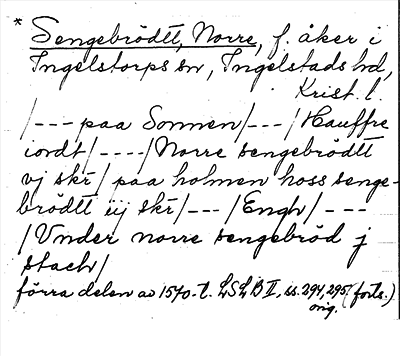 * Sengebrödtt, Norre, f. åker i
Ingelstorps sn, Ingelstads hd,
Krist. l.
/--- paa Sonnen/---/Hauffre
iordt/----/Norre sengebrödtt
vj skr/ paa holmen hoss senge-
brödtt iij skr/---/Engh/ ---
/Vnder norre sengebröd j
stach/
förra delen av 1570-t. LSLB II, ss. 294, 295 (forts.)
orig.